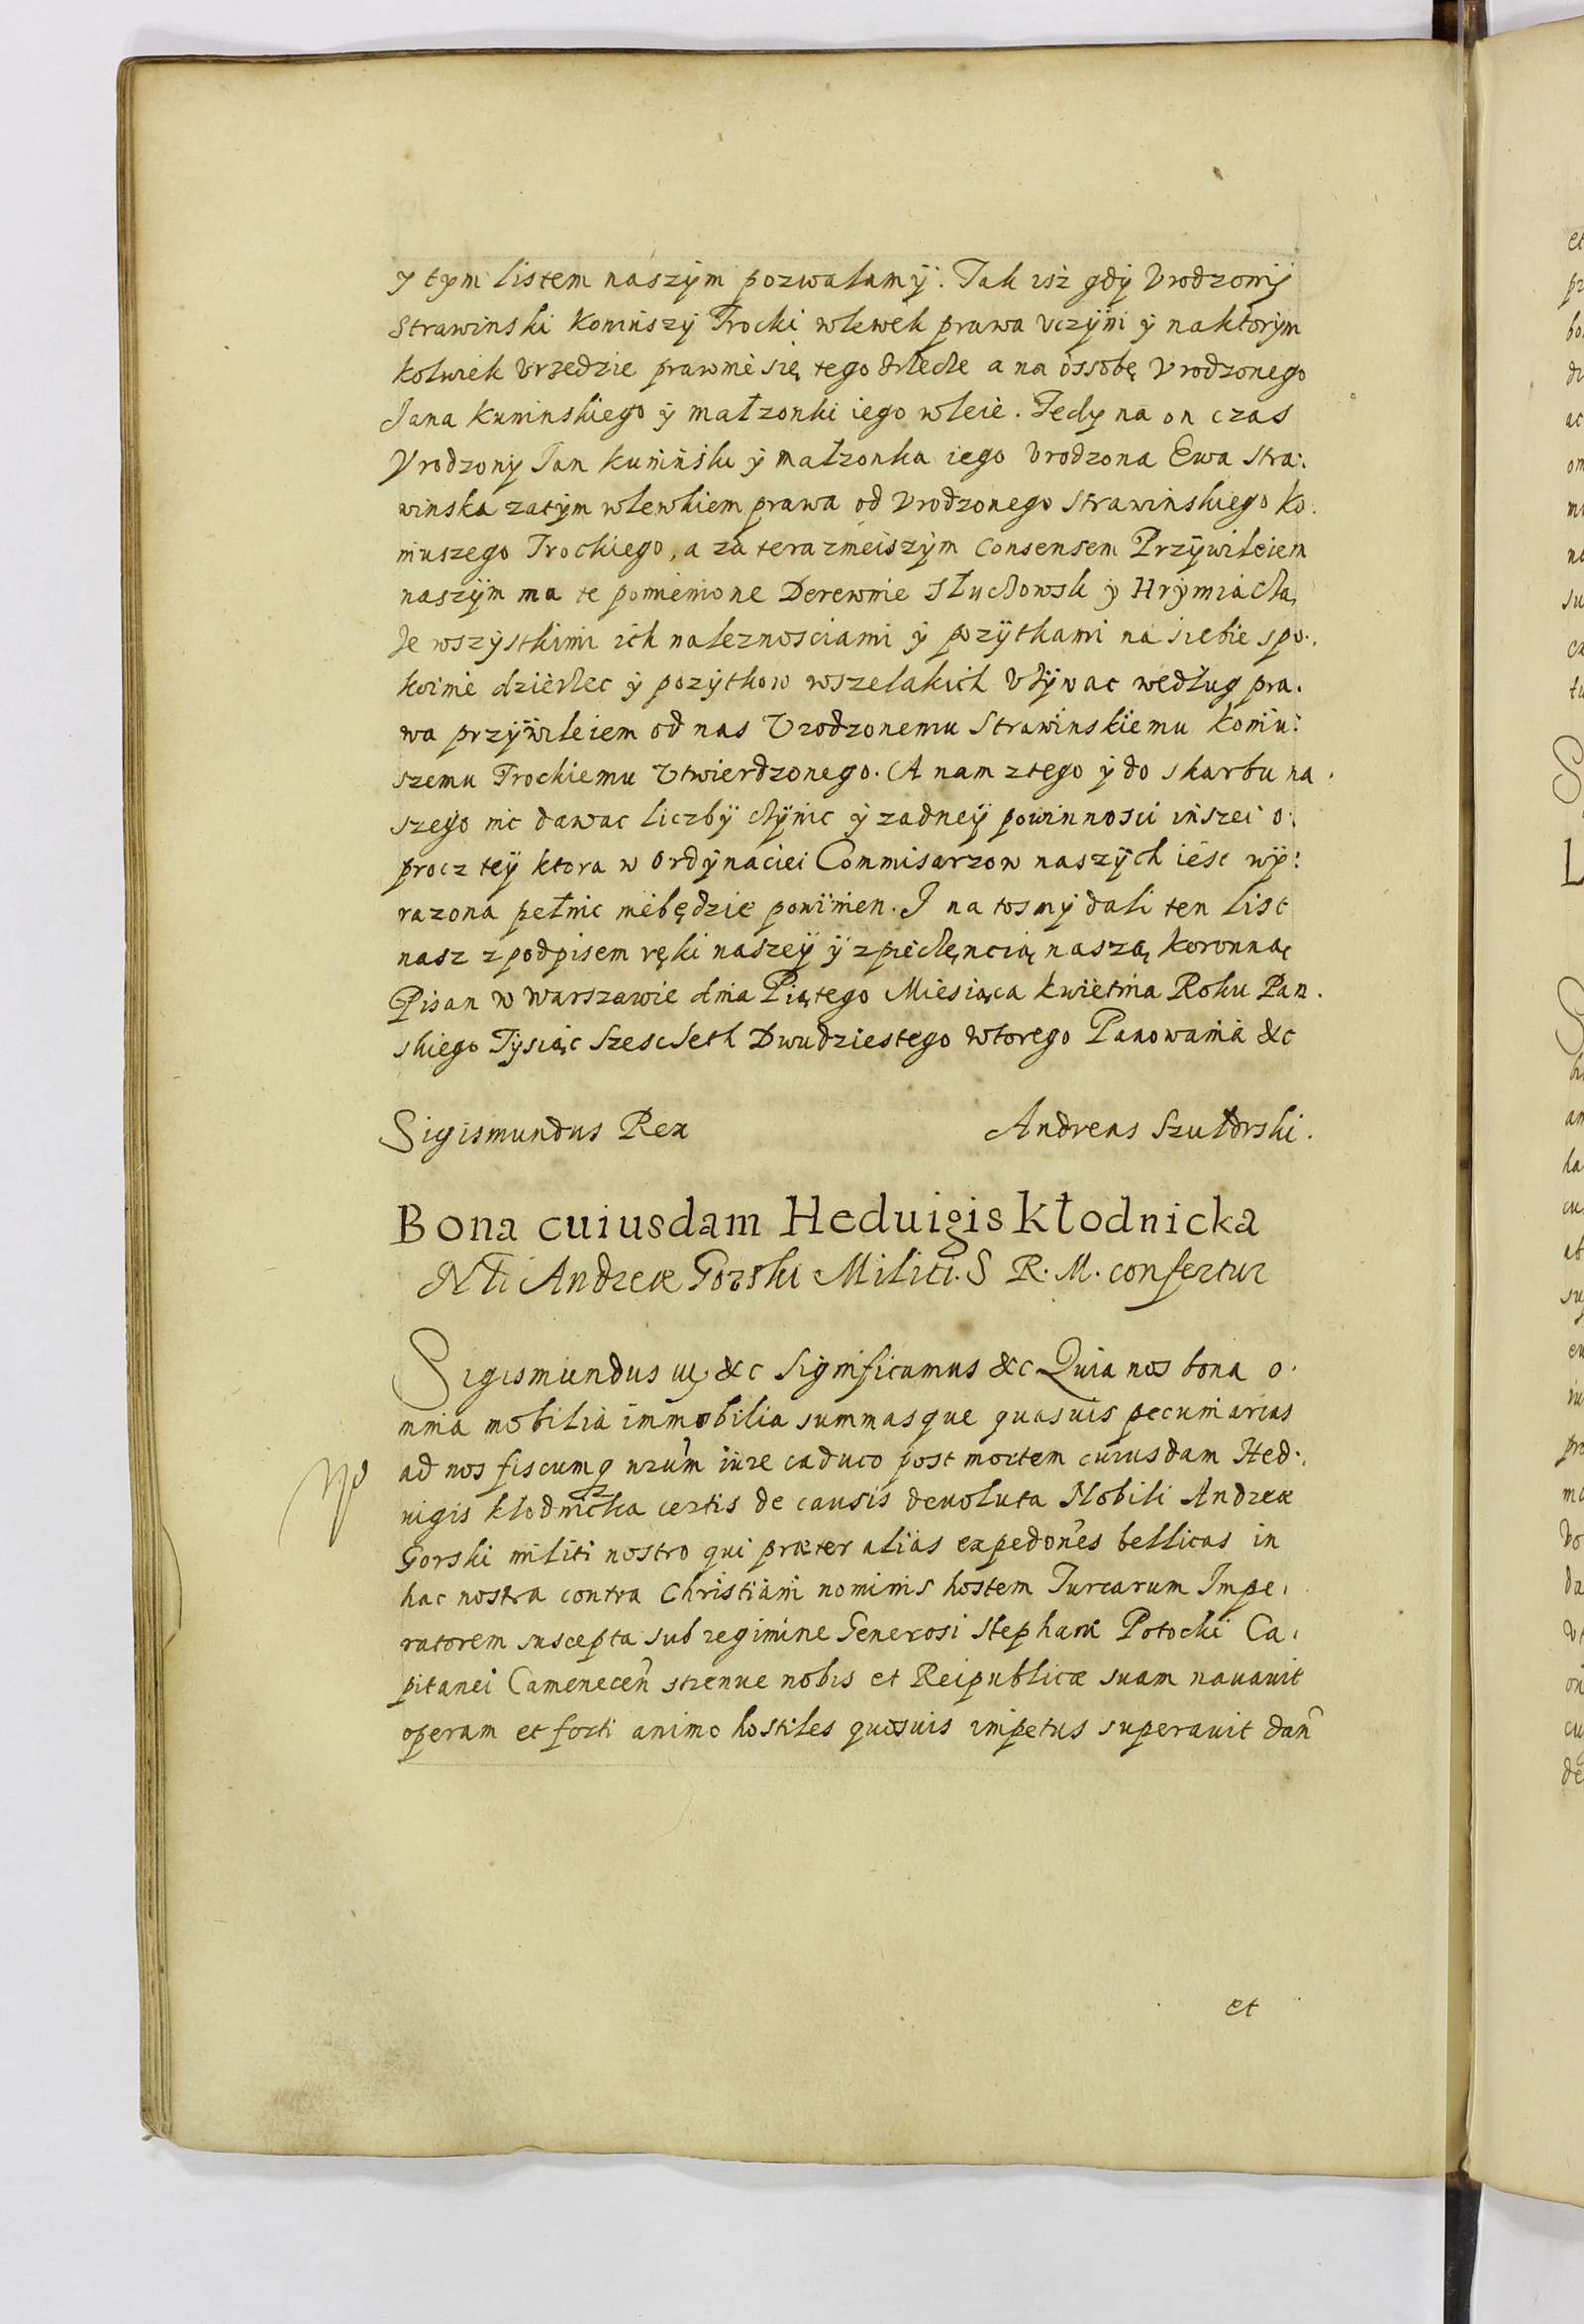 y tym listem naszym pozwalamy. Tak isz gdy Vrodzony
Strawinski Koniuszy Trocki wlewek prawa vczyni y naktorym
kolwiek vrzedzie prawnie się tego zrzecze a na ossobę Vrodzonego
Jana Kuninskiego y małzonki iego wleie. Tedy na on czas
Vrodzony Jan Kuninski y małzonka iego Vrodzona Ewa Stra:
winska zatym wlewkiem prawa od Vrodzonego Strawinskiego Ko.
niuszego Trockiego, a za terazneiszym Consensem Przywileiem
naszym ma te pomienione Derewnie Słuchowsk y Hrymiacza,
ze wszystkimi ich naleznosciami y pozytkami na siebie spo.
koinie dzierzec y pozytkow wszelakich vzywac według pra.
wa przywileiem od nas Vrodzonemu Strawinskiemu Koniu:
szemu Trockiemu Vtwierdzonego. A nam ztego y do skarbu na.
szego nic dawac liczby czynic y zadney powinnosci inszei o:
procz tey ktora w ordynaciei Commisarzow naszych iest wy:
razona pełnic niebędzie powinien. I na tosmy dali ten list
nasz z podpisem ręki naszey y zpieczęncią naszą Koronną
Pisan w Warszawie dnia Piątego Miesiąca Kwietnia Roku Pan.
skiego Tysiąc Szescseth Dwudziestego Wtorego Panowania &c
Sigismundus Rex Andreas Szułdrski.
Bona cuiusdam Heduigis Kłodnicka
Nli Andreæ Gorski Militi. S R. M. confertur
Sigismundus III &c Significamus &c Quia nos bona o.
mnia mobilia immobilia summasque quasuis pecuniarias
ad nos fiscumq nrum iure caduco post mortem cuiusdam Hed.
uigis Klodnicka certis de causis deuoluta Nobili Andreæ
Gorski militi nostro qui præter alias expedones bellicas in
hac nostra contra Christiani nominis hostem Turcarum Impe.
ratorem suscepta sub regimine Generosi Stephani Potocki Ca.
pitanei Camenecen strenue nobis et Reipublicæ suam nauauit
operam et forti animo hostiles quosuis impetus superauit dan
et